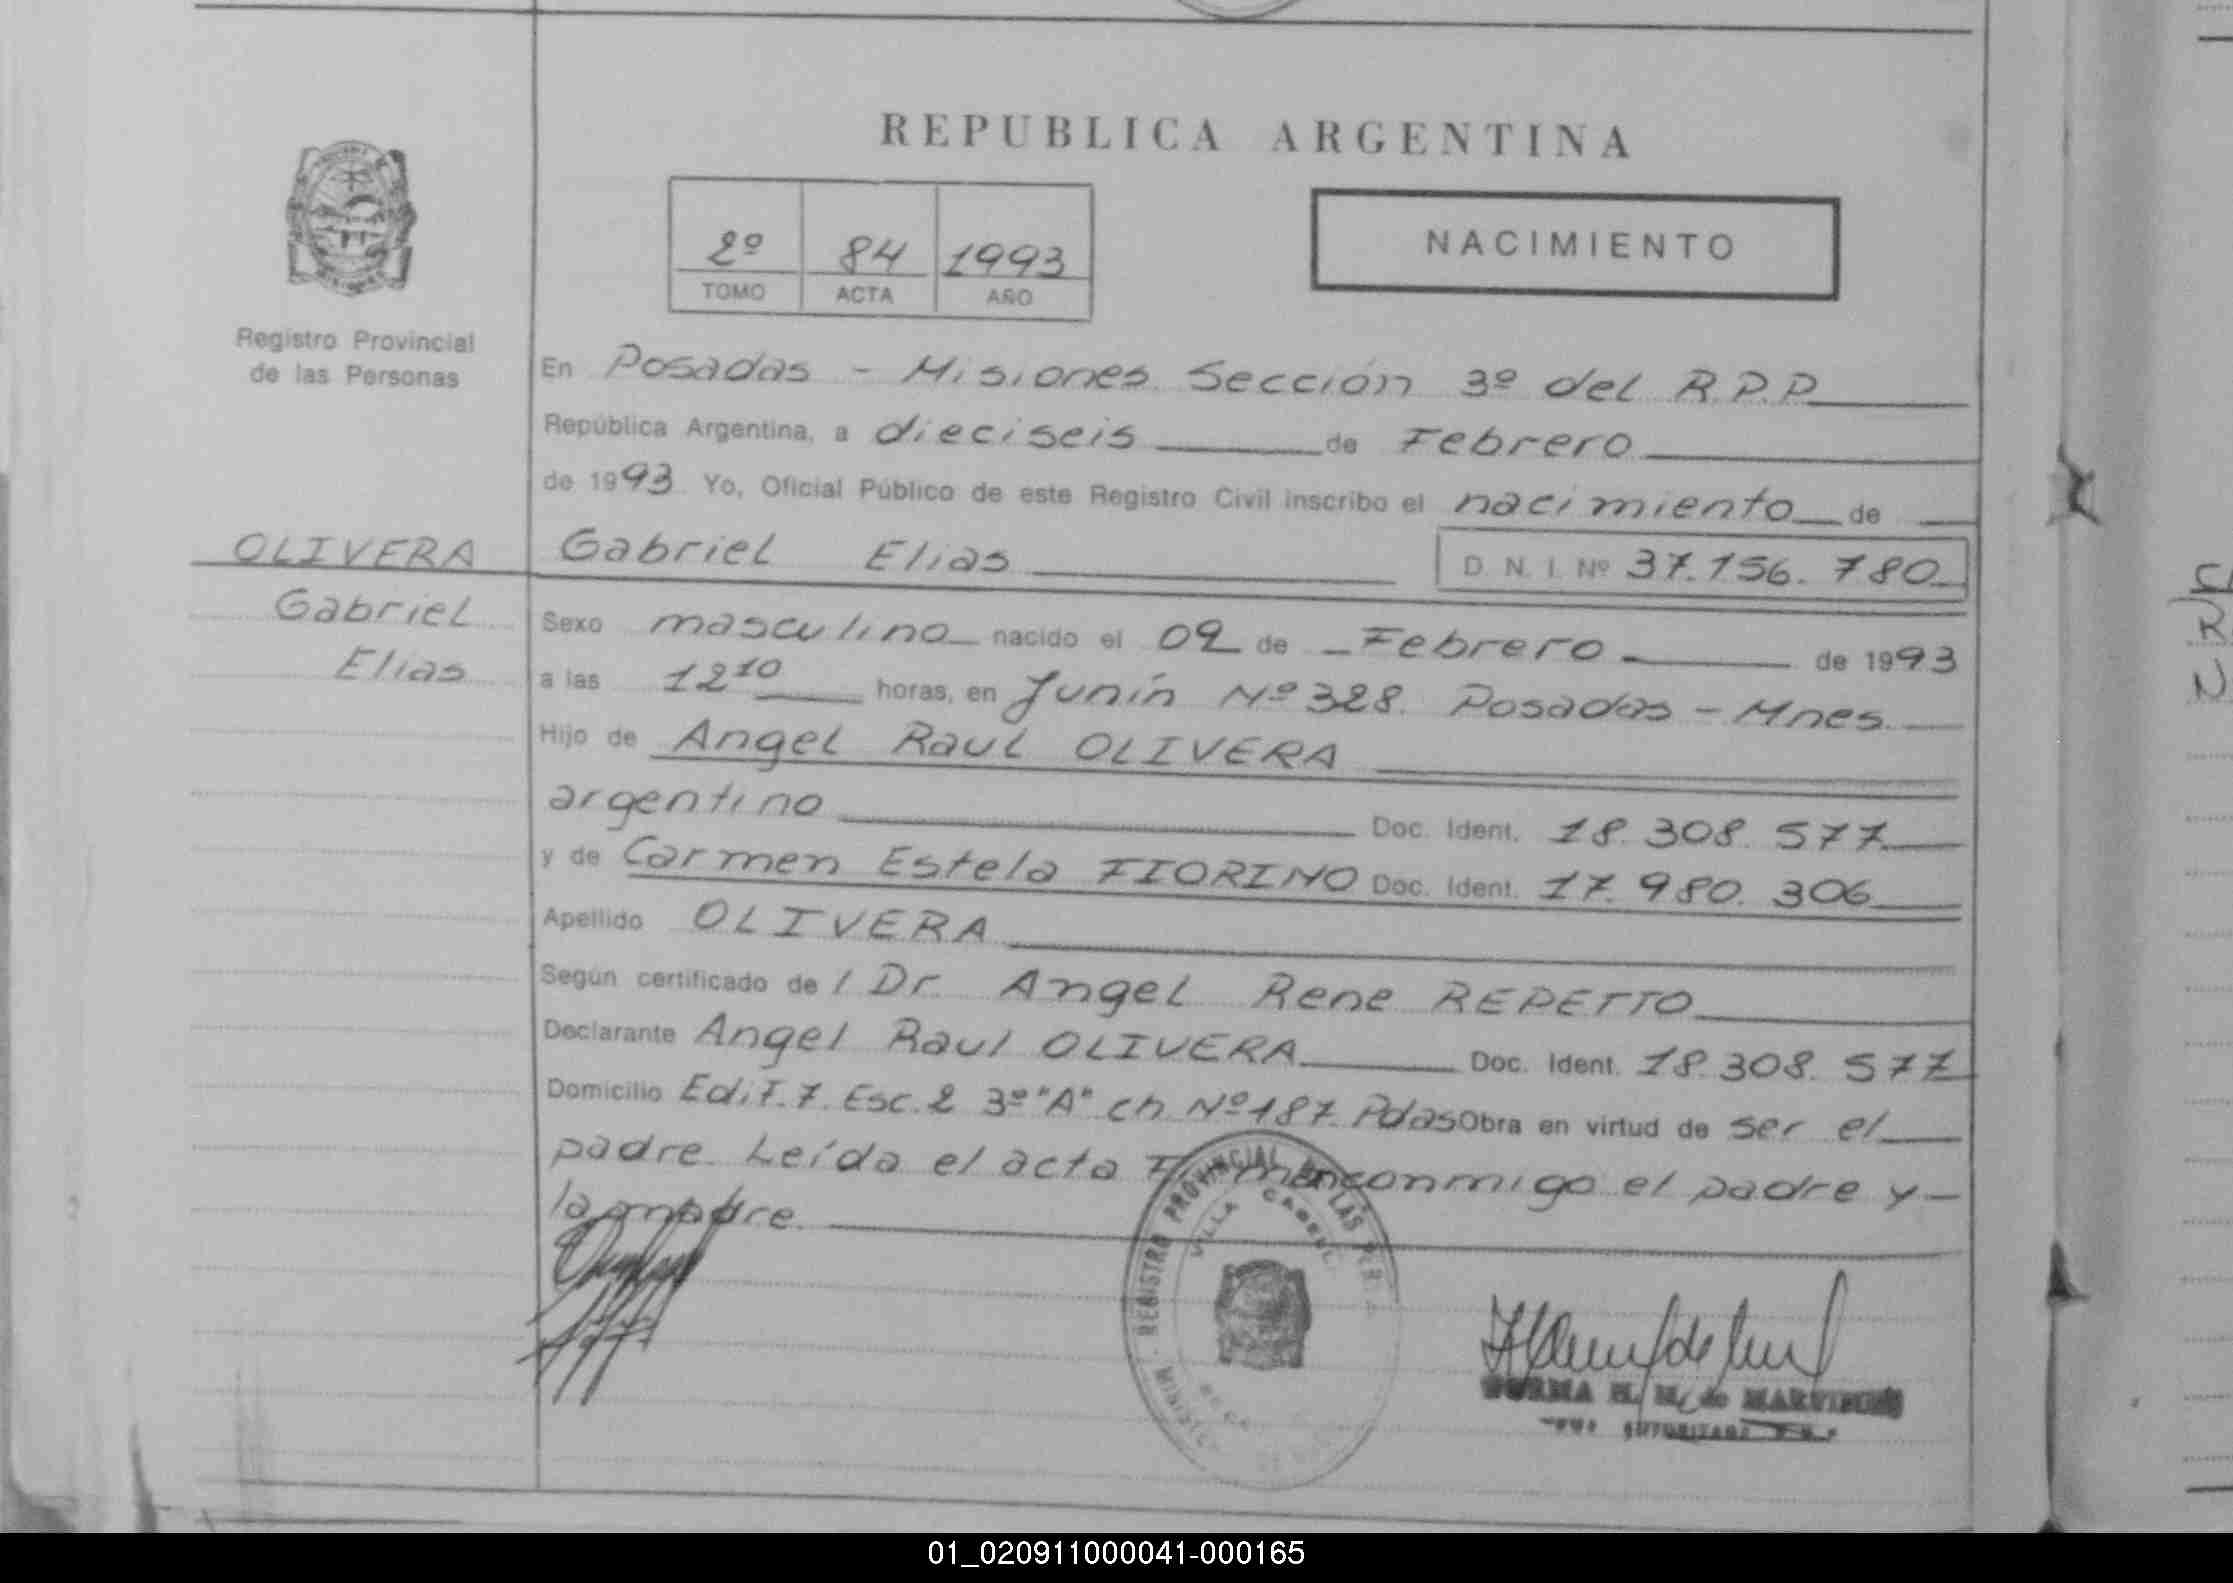 REPUBLICA ARGENTINA
2º 84 1993
TOMO ACTA AÑO
NACIMIENTO
Registro Provincial
de las Personas
En Posadas - Misiones Sección 3º del R.P.P
República Argentina, a dieciseis de Febrero
de 1993 Yo, Oficial Público de este Registro Civil inscribo el nacimiento de
OLIVERA
Gabriel
Elias
Gabriel Elias D. N. I. Nº 37.156.780
Sexo masculino nacido el 02 de Febrero de 1993
a las 12 10 horas, en Junín Nº 328. Posadas - Mnes.
Hijo de Angel Raul OLIVERA
argentino Doc. Ident. 18.308.577
y de Carmen Estela FIORINO Doc. Ident. 17.980.306
Apellido OLIVERA
Según certificado de l Dr. Angel Rene REPETTO
Declarante Angel Raul OLIVERA Doc. Ident. 18.308.577
Domicilio Edif. 7. Esc. 2 3º "A" ch Nº 187. Pdas Obra en virtud de ser el
padre. Leída el acta conmigo el padre y
la madre.
REGISTRO PROVINCIAL DE LAS
VILLA CABELL
01_020911000041-000165